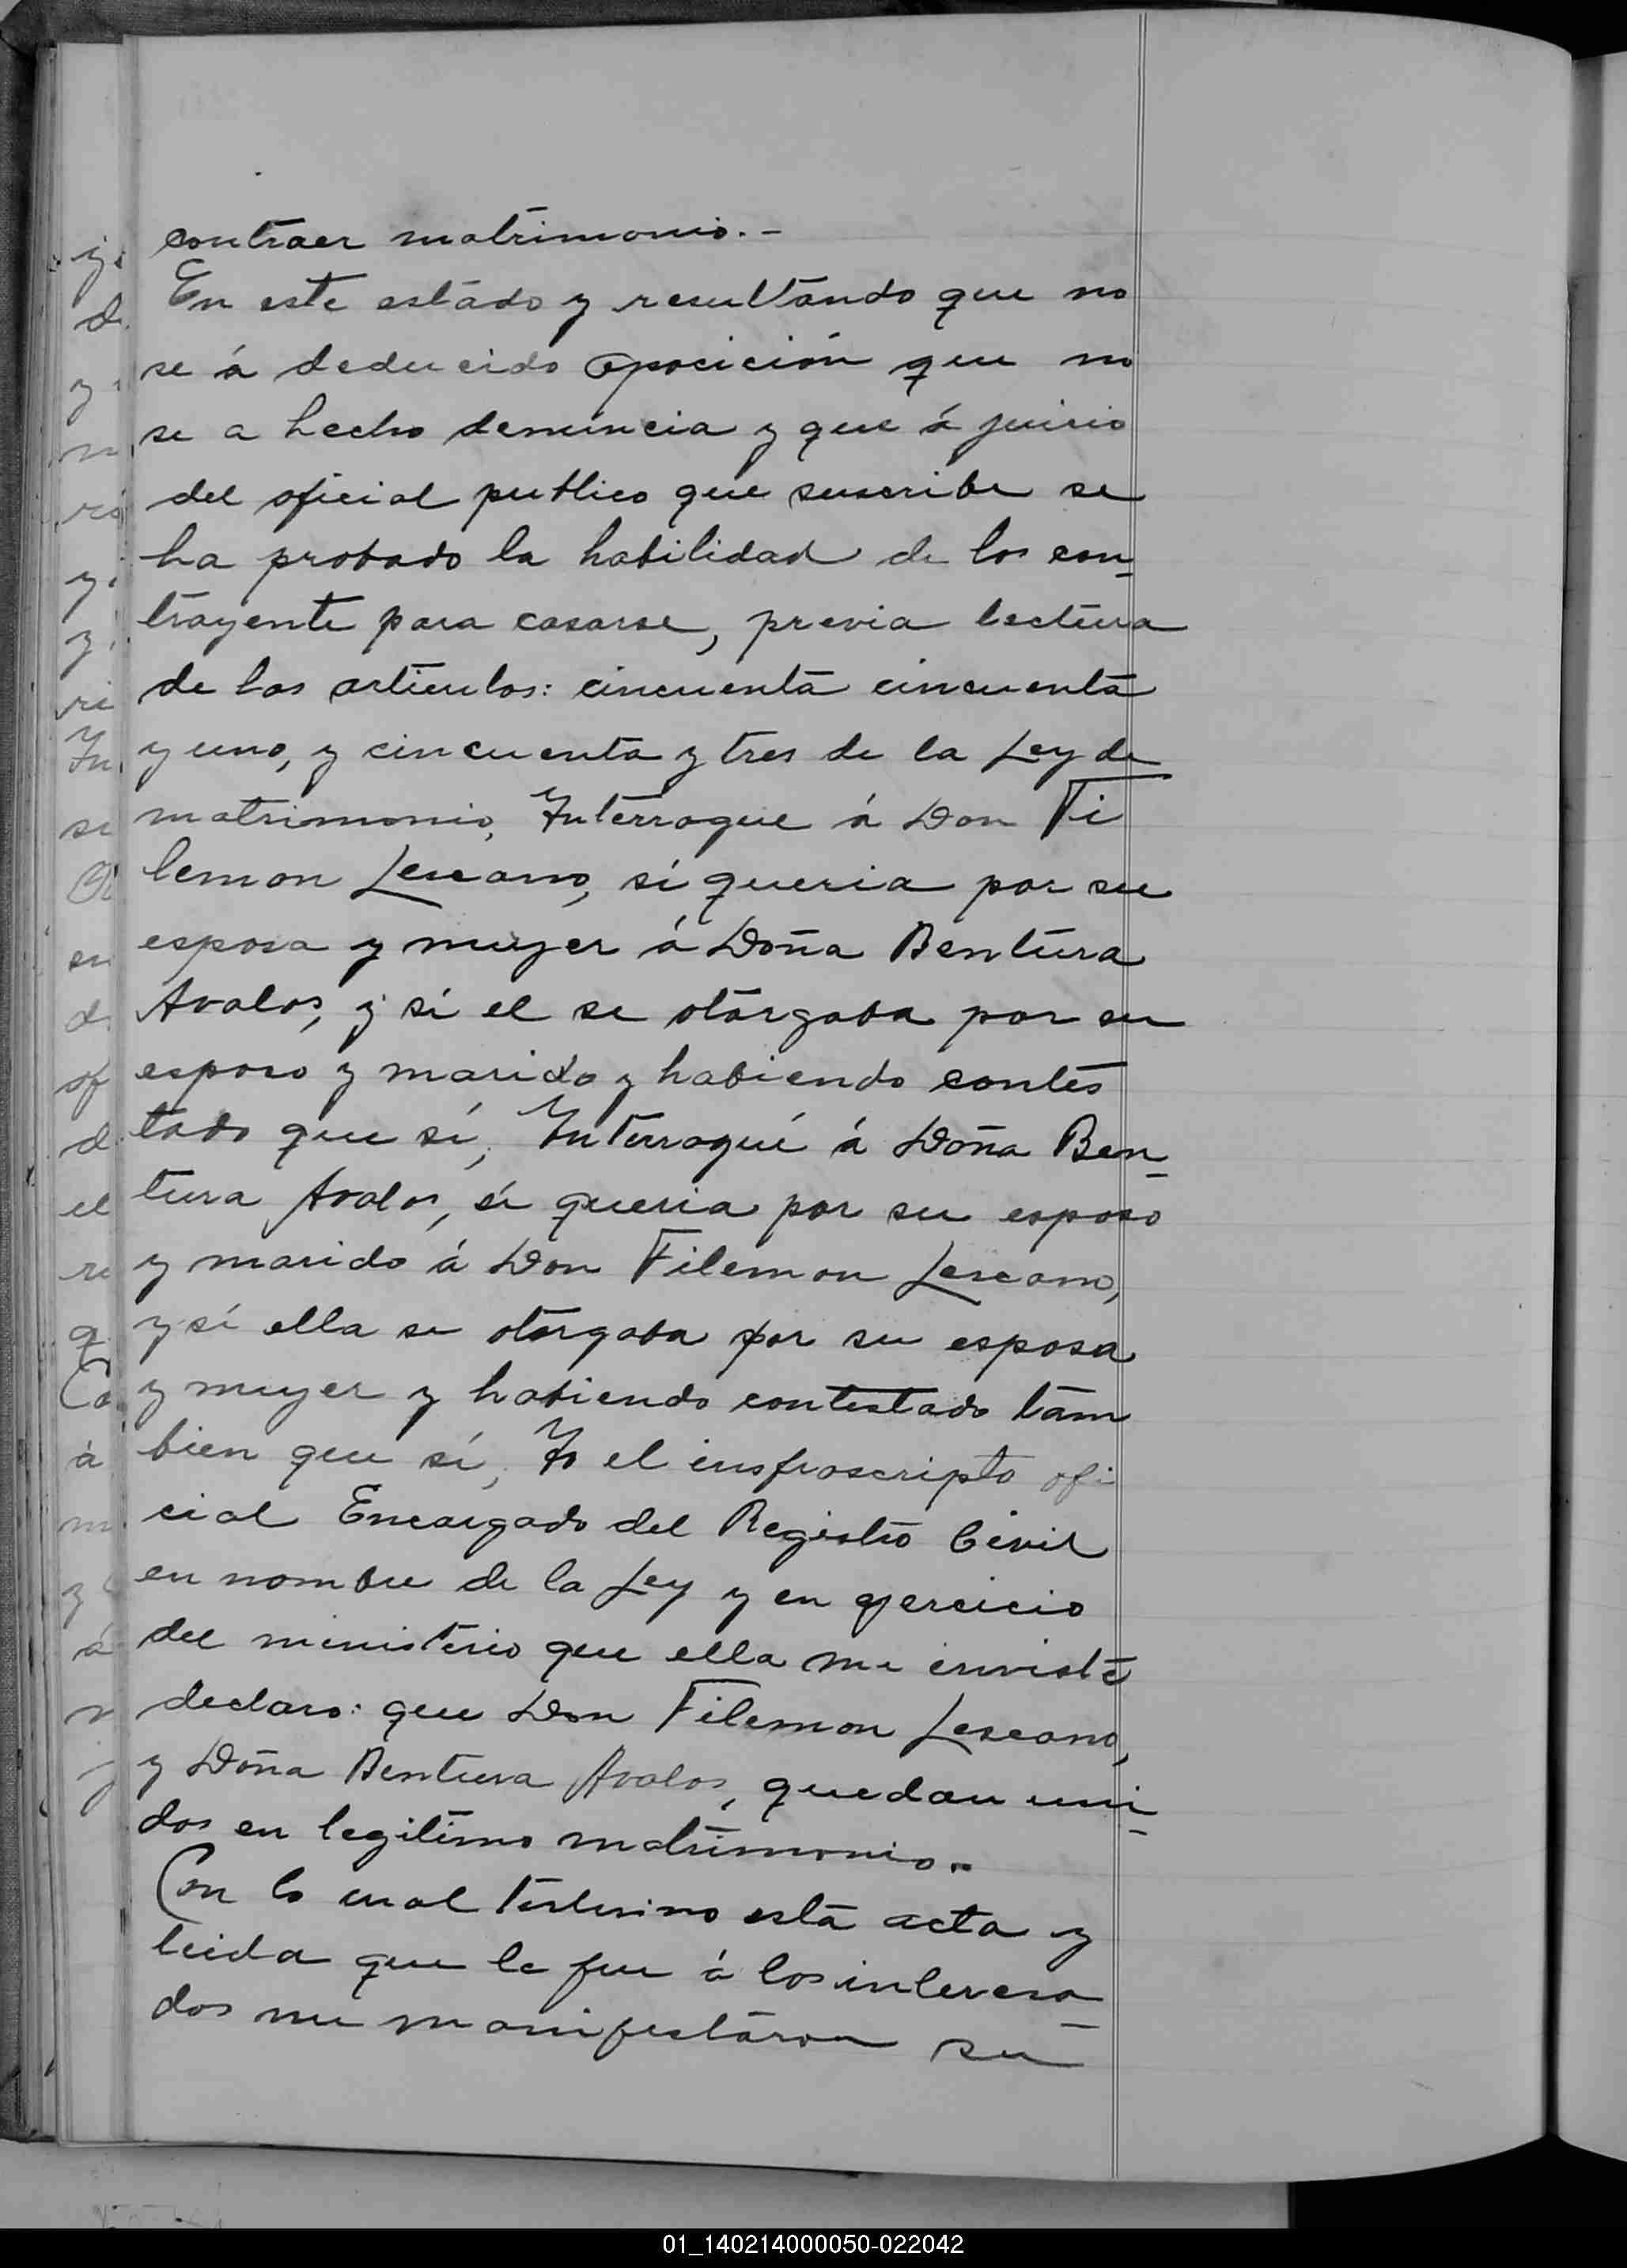 contraer matrimonio.-
En este estado y resultando que no
se á deducido oposición que no
se a hecho denuncia y que á juicio
del oficial publico que suscribe se
ha probado la habilidad de los con-
trayente para casarse, previa lectura
de los articulos: cincuenta cincuenta
y uno, y cincuenta y tres de la Ley de
matrimonio, Interrogue á Don Fi
lemon Lescano, si queria por su
esposa y mujer á Doña Bentura
Avalos, y si el se otorgaba por su
esposo y marido y habiendo contes
tado que sí, Interrogué á Doña Ben-
tura Avalos, si queria por su esposo
y marido á Don Filemon Lescano,
y si ella se otorgaba por su esposa
y mujer y habiendo contestado tam
bien que sí, Yo el insfrascripto ofi
cial Encargado del Registro Civil
en nombre de la Ley y en ejercicio
del ministerio que ella me inviste
declaro: que Don Filemon Lescano,
y Doña Bentura Avalos, quedan uni-
dos en legitimo matrimonio.-
Con lo cual termino esta acta y
leida que le fue á los interesa-
dos me manifestaron su
01_140214000050-022042